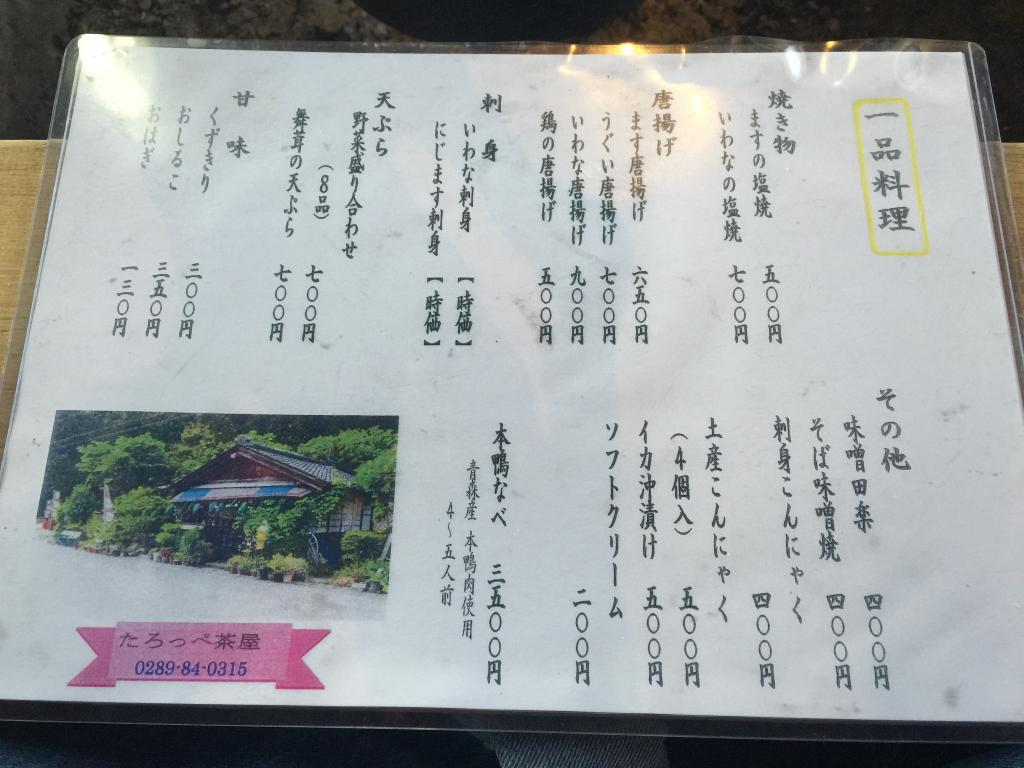 一品料理
焼き物
ますの塩焼 五〇〇円
いわなの塩焼 七〇〇円
唐揚げ
ます唐揚げ 六五〇円
うぐい唐揚げ 七〇〇円
いわな唐揚げ 九〇〇円
鶏の唐揚げ 五〇〇円
刺身
いわな刺身 【時価】
にじます刺身 【時価】
天ぷら
野菜盛り合わせ
（8品） 七〇〇円
舞茸の天ぷら 七〇〇円
甘味
くずきり 三〇〇円
おしるこ 三五〇円
おはぎ 一三〇円
その他
味噌田楽 四〇〇円
そば味噌焼 四〇〇円
刺身こんにゃく 四〇〇円
土産こんにゃく
（4個入） 五〇〇円
イカ沖漬け 五〇〇円
ソフトクリーム 二〇〇円
本鴨なべ 三五〇〇円
青森産 本鴨肉使用
4～五人前
たろっぺ茶屋
0289-84-0315